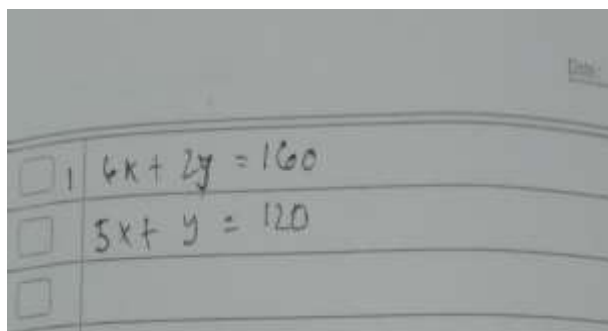 Date:
1 6x + 2y = 160
5x + y = 120